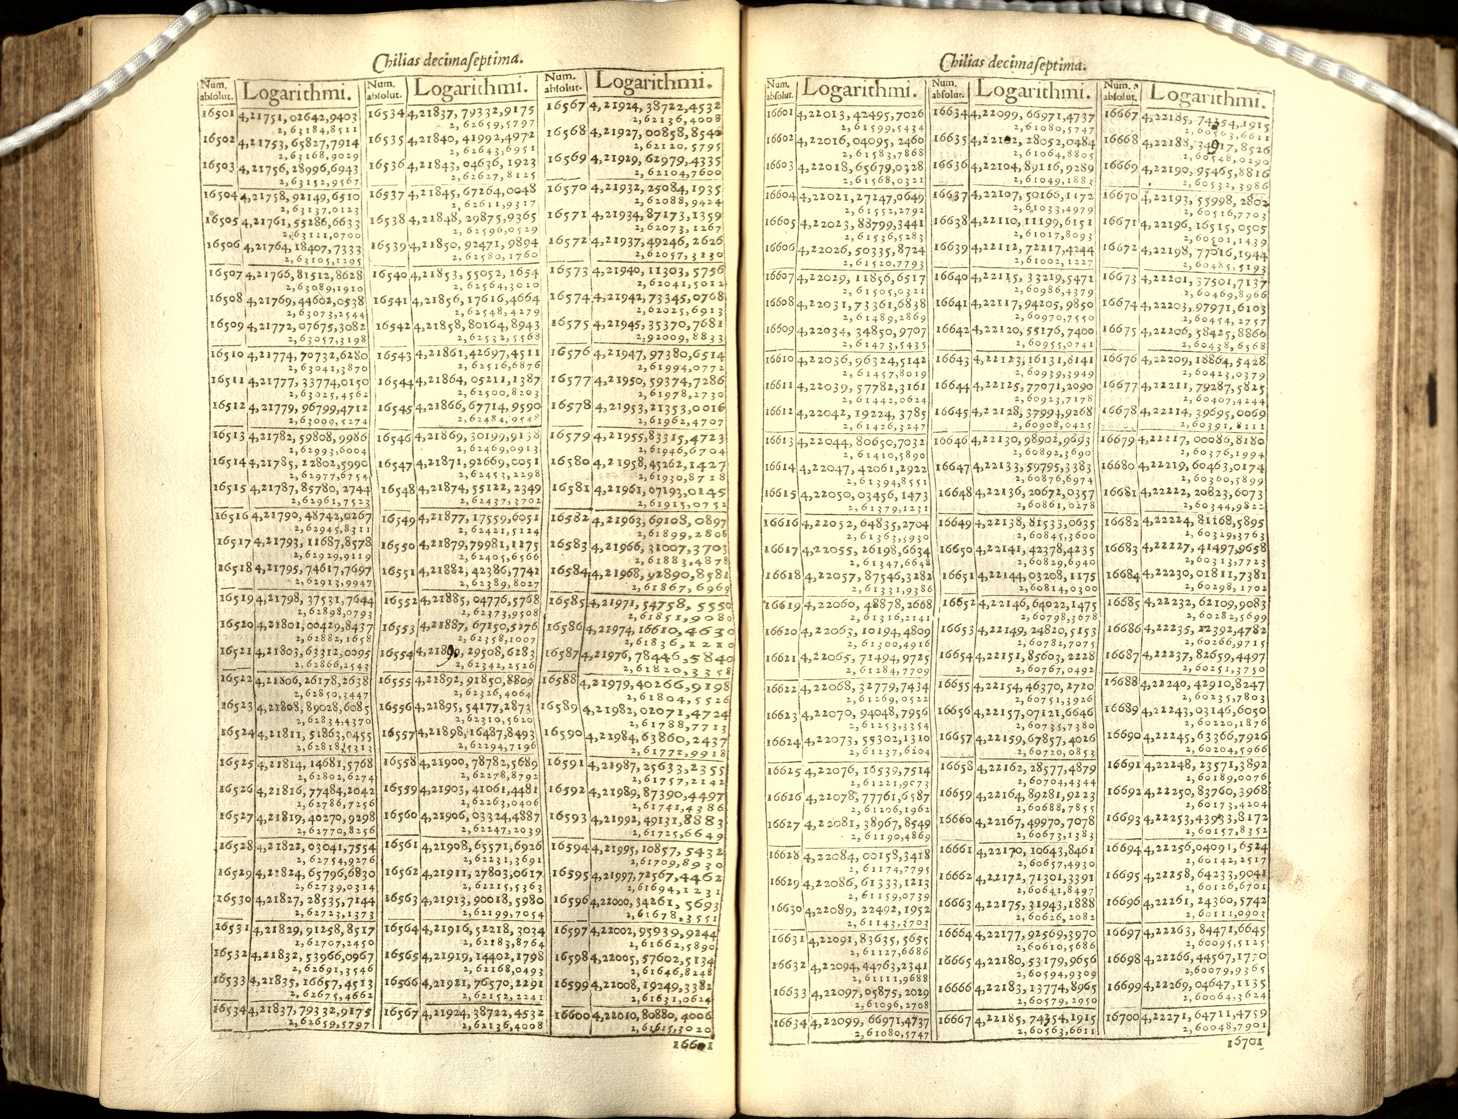 Chilias decimaseptima.
Num. absolut. Logarithmi.
16501 4,21751,02642,9403
2,63184,8511
16502 4,21753,65827,7914
2,63168,9029
16503 4,21756,28996,6943
2,63152,9567
16504 4,21758,92149,6510
2,63137,0123
16505 4,21761,55286,6633
2,63121,0700
16506 4,21764,18407,7333
2,63105,1295
16507 4,21766,81512,8628
2,63089,1910
16508 4,21769,44602,0538
2,63073,2544
16509 4,21772,07675,3082
2,63057,3198
16510 4,21774,70732,6280
2,63041,3870
16511 4,21777,33774,0150
2,63025,4562
16512 4,21779,96799,4712
2,63009,5274
16513 4,21782,59808,9986
2,62993,6004
16514 4,21785,22802,5990
2,62977,6754
16515 4,21787,85780,2744
2,62961,7523
16516 4,21790,48742,0267
2,62945,8311
16517 4,21793,11687,8578
2,62929,9119
16518 4,21795,74617,7697
2,62913,9947
16519 4,21798,37531,7644
2,62898,0793
16520 4,21801,00429,8437
2,62882,1658
16521 4,21803,63312,0095
2,62866,2543
16522 4,21806,26178,2638
2,62850,3447
16523 4,21808,89028,6085
2,62834,4370
16524 4,21811,51863,0455
2,62818,5313
16525 4,21814,14681,5768
2,62802,6274
16526 4,21816,77484,2042
2,62786,7256
16527 4,21819,40270,9298
2,62770,8256
16528 4,21822,03041,7554
2,62754,9276
16529 4,21824,65796,6830
2,62739,0314
16530 4,21827,28535,7144
2,62723,1373
16531 4,21829,91258,8517
2,62707,2450
16532 4,21832,53966,0967
2,62691,3546
16533 4,21835,16657,4513
2,62675,4662
16534 4,21837,79332,9175
2,62659,5797
Num. absolut. Logarithmi.
16534 4,21837,79332,9175
2,62659,5797
16535 4,21840,41992,4972
2,62643,6951
16536 4,21843,04636,1923
2,62627,8125
16537 4,21845,67264,0048
2,62611,9317
16538 4,21848,29875,9365
2,62596,0529
16539 4,21850,92471,9894
2,62580,1760
16540 4,21853,55052,1654
2,62564,3010
16541 4,21856,17616,4664
2,62548,4279
16542 4,21858,80164,8943
2,62532,5568
16543 4,21861,42697,4511
2,62516,6876
16544 4,21864,05211,1387
2,62500,8203
16545 4,21866,67714,9590
2,62484,9548
16546 4,21869,30199,9138
2,62469,0913
16547 4,21871,92669,0051
2,62453,2298
16548 4,21874,55122,2349
2,62437,3702
16549 4,21877,17559,6051
2,62421,5124
16550 4,21879,79981,1175
2,62405,6566
16551 4,21882,42386,7741
2,62389,8027
16552 4,21885,04776,5768
2,62373,9508
16553 4,21887,67150,5276
2,62358,1007
16554 4,21890,29508,6283
2,62342,2526
16555 4,21892,91850,8809
2,62326,4064
16556 4,21895,54177,2873
2,62310,5620
16557 4,21898,16487,8493
2,62294,7196
16558 4,21900,78782,5689
2,62278,8792
16559 4,21903,41061,4481
2,62263,0406
16560 4,21906,03324,4887
2,62247,2039
16561 4,21908,65571,6926
2,62231,3691
16562 4,21911,27803,0617
2,62215,5363
16563 4,21913,90018,5980
2,62199,7054
16564 4,21916,52218,3034
2,62183,8764
16565 4,21919,14402,1798
2,62168,0493
16566 4,21921,76570,2291
2,62152,2241
16567 4,21924,38722,4532
2,62136,4008
Num. absolut. Logarithmi.
16567 4,21924,38722,4532
2,62136,4008
16568 4,21927,00858,8540
2,62120,5795
16569 4,21929,62979,4335
2,62104,7600
16570 4,21932,25084,1935
2,62088,9424
16571 4,21934,87173,1359
2,62073,1267
16572 4,21937,49246,2626
2,62057,3130
16573 4,21940,11303,5756
2,62041,5012
16574 4,21942,73345,0768
2,62025,6913
16575 4,21945,35370,7681
2,92009,8833
16576 4,21947,97380,6514
2,61994,0772
16577 4,21950,59374,7286
2,61978,2730
16578 4,21953,21353,0016
2,61962,4707
16579 4,21955,83315,4723
2,61946,6704
16580 4,21958,45262,1427
2,61930,8718
16581 4,21961,07193,0145
2,61915,0752
16582 4,21963,69108,0897
2,61899,2806
16583 4,21966,31007,3703
2,61883,4878
16584 4,21968,92890,8581
2,61867,6969
16585 4,21971,54758,5550
2,61851,9080
16586 4,21974,16610,4630
2,61836,1210
16587 4,21976,78446,5840
2,61820,3358
16588 4,21979,40266,9198
2,61804,5526
16589 4,21982,02071,4724
2,61788,7713
16590 4,21984,63860,2437
2,61772,9918
16591 4,21987,25633,2355
2,61757,2142
16592 4,21989,87390,4497
2,61741,4386
16593 4,21992,49131,8883
2,61725,6649
16594 4,21995,10857,5432
2,61709,8930
16595 4,21997,72567,4462
2,61694,1231
16596 4,22000,34261,5693
2,61678,3551
16597 4,22002,95939,9244
2,61662,5890
16598 4,22005,57602,5134
2,61646,8248
16599 4,22008,19249,3382
2,61631,0624
16600 4,22010,80880,4006
2,61615,3020
16601
Chilias decimaseptima.
Num. absolut. Logarithmi.
16601 4,22013,42495,7026
2,61599,5434
16602 4,22016,04095,2460
2,61583,7868
16603 4,22018,65679,0328
2,61568,0321
16604 4,22021,27247,0649
2,61552,2792
16605 4,22023,88799,3441
2,61536,5283
16606 4,22026,50335,8724
2,61520,7793
16607 4,22029,11856,6517
2,61505,0321
16608 4,22031,73361,6838
2,61489,2869
16609 4,22034,34850,9707
2,61473,5435
16610 4,22036,96324,5142
2,61457,8019
16611 4,22039,57782,3161
2,61442,0624
16612 4,22042,19224,3785
2,61426,3247
16613 4,22044,80650,7032
2,61410,5890
16614 4,22047,42061,2922
2,61394,8551
16615 4,22050,03456,1473
2,61379,1231
16616 4,22052,64835,2704
2,61363,3930
16617 4,22055,26198,6634
2,61347,6648
16618 4,22057,87546,3282
2,61331,9386
16619 4,22060,48878,2668
2,61316,2141
16620 4,22063,10194,4809
2,61300,4916
16621 4,22065,71494,9725
2,61284,7709
16622 4,22068,32779,7434
2,61269,0522
16623 4,22070,94048,7956
2,61253,3354
16624 4,22073,55302,1310
2,61237,6204
16625 4,22076,16539,7514
2,61221,9073
16626 4,22078,77761,6587
2,61206,1962
16627 4,22081,38967,8549
2,61190,4869
16628 4,22084,00158,3418
2,61174,7795
16629 4,22086,61333,1213
2,61159,0739
16630 4,22089,22492,1952
2,61143,3703
16631 4,22091,83635,5655
2,61127,6686
16632 4,22094,44763,2341
2,61111,9688
16633 4,22097,05875,2029
2,61096,2708
16634 4,22099,66971,4737
2,61080,5747
Num. absolut. Logarithmi.
16634 4,22099,66971,4737
2,61080,5747
16635 4,22102,28052,0484
2,61064,8805
16636 4,22104,89116,9289
2,61049,1883
16637 4,22107,50166,1172
2,61033,4979
16638 4,22110,11199,6151
2,61017,8093
16639 4,22112,72217,4244
2,61002,1227
16640 4,22115,33219,5471
2,60986,4379
16641 4,22117,94205,9850
2,60970,7550
16642 4,22120,55176,7400
2,60955,0741
16643 4,22123,16131,8141
2,60939,3949
16644 4,22125,77071,2090
2,60923,7178
16645 4,22128,37994,9268
2,60908,0425
16646 4,22130,98902,9693
2,60892,3690
16647 4,22133,59795,3383
2,60876,6974
16648 4,22136,20672,0357
2,60861,0278
16649 4,22138,81533,0635
2,60845,3600
16650 4,22141,42378,4235
2,60829,6940
16651 4,22144,03208,1175
2,60814,0300
16652 4,22146,64022,1475
2,60798,3678
16653 4,22149,24820,5153
2,60782,7075
16654 4,22151,85603,2228
2,60767,0492
16655 4,22154,46370,2720
2,60751,3926
16656 4,22157,07121,6646
2,60735,7380
16657 4,22159,67857,4026
2,60720,0853
16658 4,22162,28577,4879
2,60704,4344
16659 4,22164,89281,9223
2,60688,7855
16660 4,22167,49970,7078
2,60673,1383
16661 4,22170,10643,8461
2,60657,4930
16662 4,22172,71301,3391
2,60641,8497
16663 4,22175,31943,1888
2,60626,2082
16664 4,22177,92569,3970
2,60610,5686
16665 4,22180,53179,9656
2,60594,9309
16666 4,22183,13774,8965
2,60579,2950
16667 4,22185,74354,1915
2,60563,6611
Num. absolut. Logarithmi.
16667 4,22185,74354,1915
2,60563,6611
16668 4,22188,34917,8526
2,60548,0290
16669 4,22190,95465,8816
2,60532,3986
16670 4,22193,55998,2802
2,60516,7703
16671 4,22196,16515,0505
2,60501,1439
16672 4,22198,77016,1944
2,60485,5193
16673 4,22201,37501,7137
2,60469,8966
16674 4,22203,97971,6103
2,60454,2757
16675 4,22206,58425,8860
2,60438,6568
16676 4,22209,18864,5428
2,60423,0379
16677 4,22211,79287,5825
2,60407,4244
16678 4,22214,39695,0069
2,60391,8111
16679 4,22217,00086,8180
2,60376,1994
16680 4,22219,60463,0174
2,60360,5899
16681 4,22222,20823,6073
2,60344,9822
16682 4,22224,81168,5895
2,60329,3763
16683 4,22227,41497,9658
2,60313,7723
16684 4,22230,01811,7381
2,60298,1702
16685 4,22232,62109,9083
2,60282,5699
16686 4,22235,22392,4782
2,60266,9715
16687 4,22237,82659,4497
2,60251,3750
16688 4,22240,42910,8247
2,60235,7803
16689 4,22243,03146,6050
2,60220,1876
16690 4,22245,63366,7926
2,60204,5966
16691 4,22248,23571,3892
2,60189,0076
16692 4,22250,83760,3968
2,60173,4204
16693 4,22253,43933,8172
2,60157,8352
16694 4,22256,04091,6524
2,60142,2517
16695 4,22258,64233,9041
2,60126,6701
16696 4,22261,24360,5742
2,60111,0903
16697 4,22263,84471,6645
2,60095,5125
16698 4,22266,44567,1770
2,60079,9365
16699 4,22269,04647,1135
2,60064,3624
16700 4,22271,64711,4759
2,60048,7901
16701